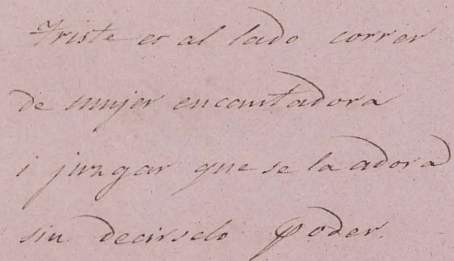 Triste es al lado correr
de mujer encantadora
i juzgar que se la adora
sin decirselo poder.